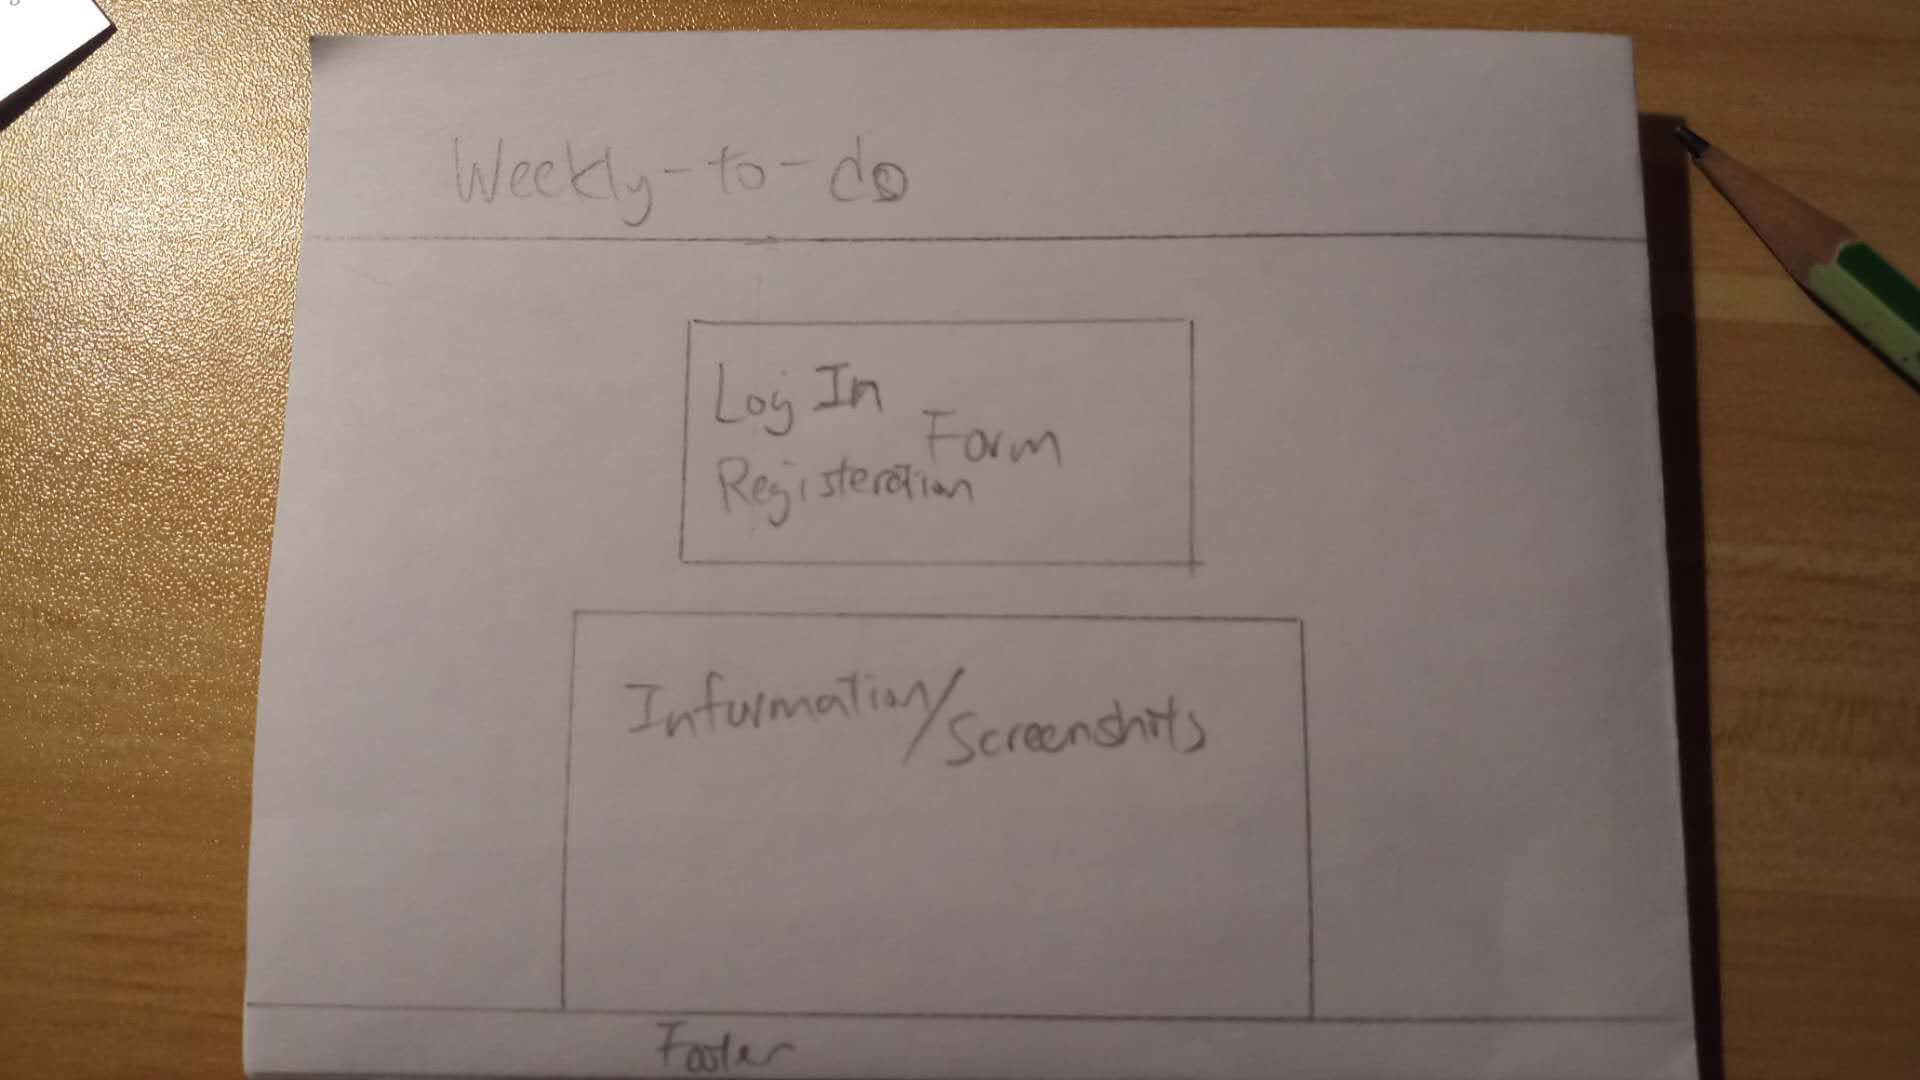 Weekly-to-do
Log In
Form
Registeration
Information/Screenshots
Footer